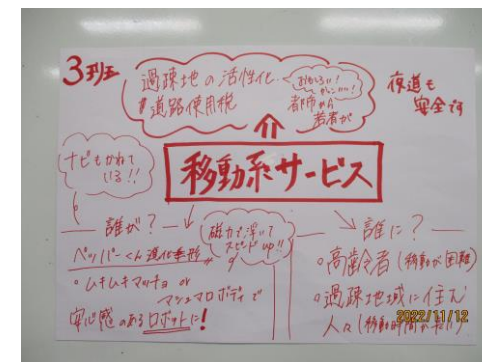 3班
過疎地の活性化
道路使用税
おもしろい!
かっこいい!
都市から
若者が
夜道も
安全です
ナビもかねて
いる!!
移動系サービス
誰が?
ペッパーくん進化系形
・ムキムキマッチョ or
マシュマロボディで
安心感のあるロボットに!
磁力で浮いて
スピードup!!
誰に?
・高齢者(移動が困難)
・過疎地域に住む
人々(移動時間が
2022/11/12